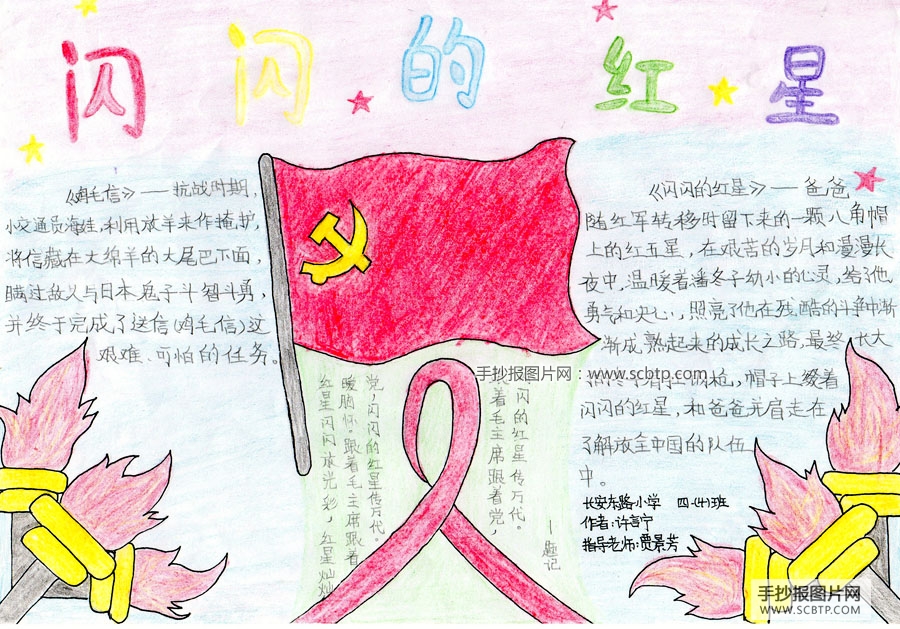 闪闪的红星
《鸡毛信》——抗战时期，
小交通员海娃，利用放羊来作掩护，
将信藏在大绵羊的大尾巴下面，
瞒过敌人与日本鬼子斗智斗勇，
并终于完成了送信(鸡毛信)这
艰难、可怕的任务。
红星闪闪放光彩，红星灿灿
暖胸怀。跟着毛主席跟着
党，闪闪的红星传万代。
着毛主席跟着党，
闪的红星传万代。
—题记
《闪闪的红星》——爸爸
随红军转移时留下来的一颗八角帽
上的红五星，在艰苦的岁月和漫漫长
夜中，温暖着潘冬子幼小的心灵，给了他
勇气和决心，照亮了他在残酷的斗争中渐
渐成熟起来的成长之路，最终，长大
钢枪，帽子上缀着
闪闪的红星，和爸爸并肩走在
了解放全中国的队伍
中。
长安东路小学 四·(十)班
作者：许言宁
指导老师：贾景芳
手抄报图片网：www.scbtp.com
手抄报图片网
WWW.SCBTP.COM